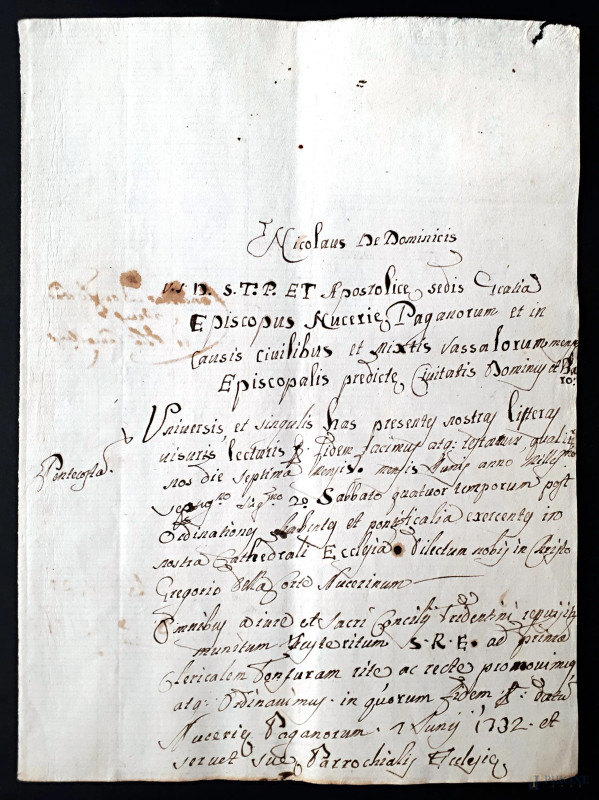 Nicolaus De Dominicis
V.I.D. S.T.P. ET Apostolice sedis Gratia
Episcopus Nucerie Paganorum et in
Causis civilibus et mixtis Vassalorum mense
Episcopalis predicte Civitatis Dominus et Ba
ro:
Universis et singulis has presentes nostras litteras
visuris lecturis fidem facimus atq: testamur qualr
Pentecosta
nos die septima mensis Junij anno
2º Sabbato quatuor temporum post
Ordinationes habentes et pontificalia exercentes in
nostra Cathedrali Ecclesia Dilectum nobis in Christo
Gregorio Nucerinum
Omnibus a iure et sacri Concilij Tridentini requisitis
munitum S. R. E. ad prima
Clericalem Tonsuram rite ac recte promovimus
atq: Ordinavimus. in quorum fidem datu
Nucerie Paganorum 7 Junij 1732. et
servet sue Parrochialis Ecclesie